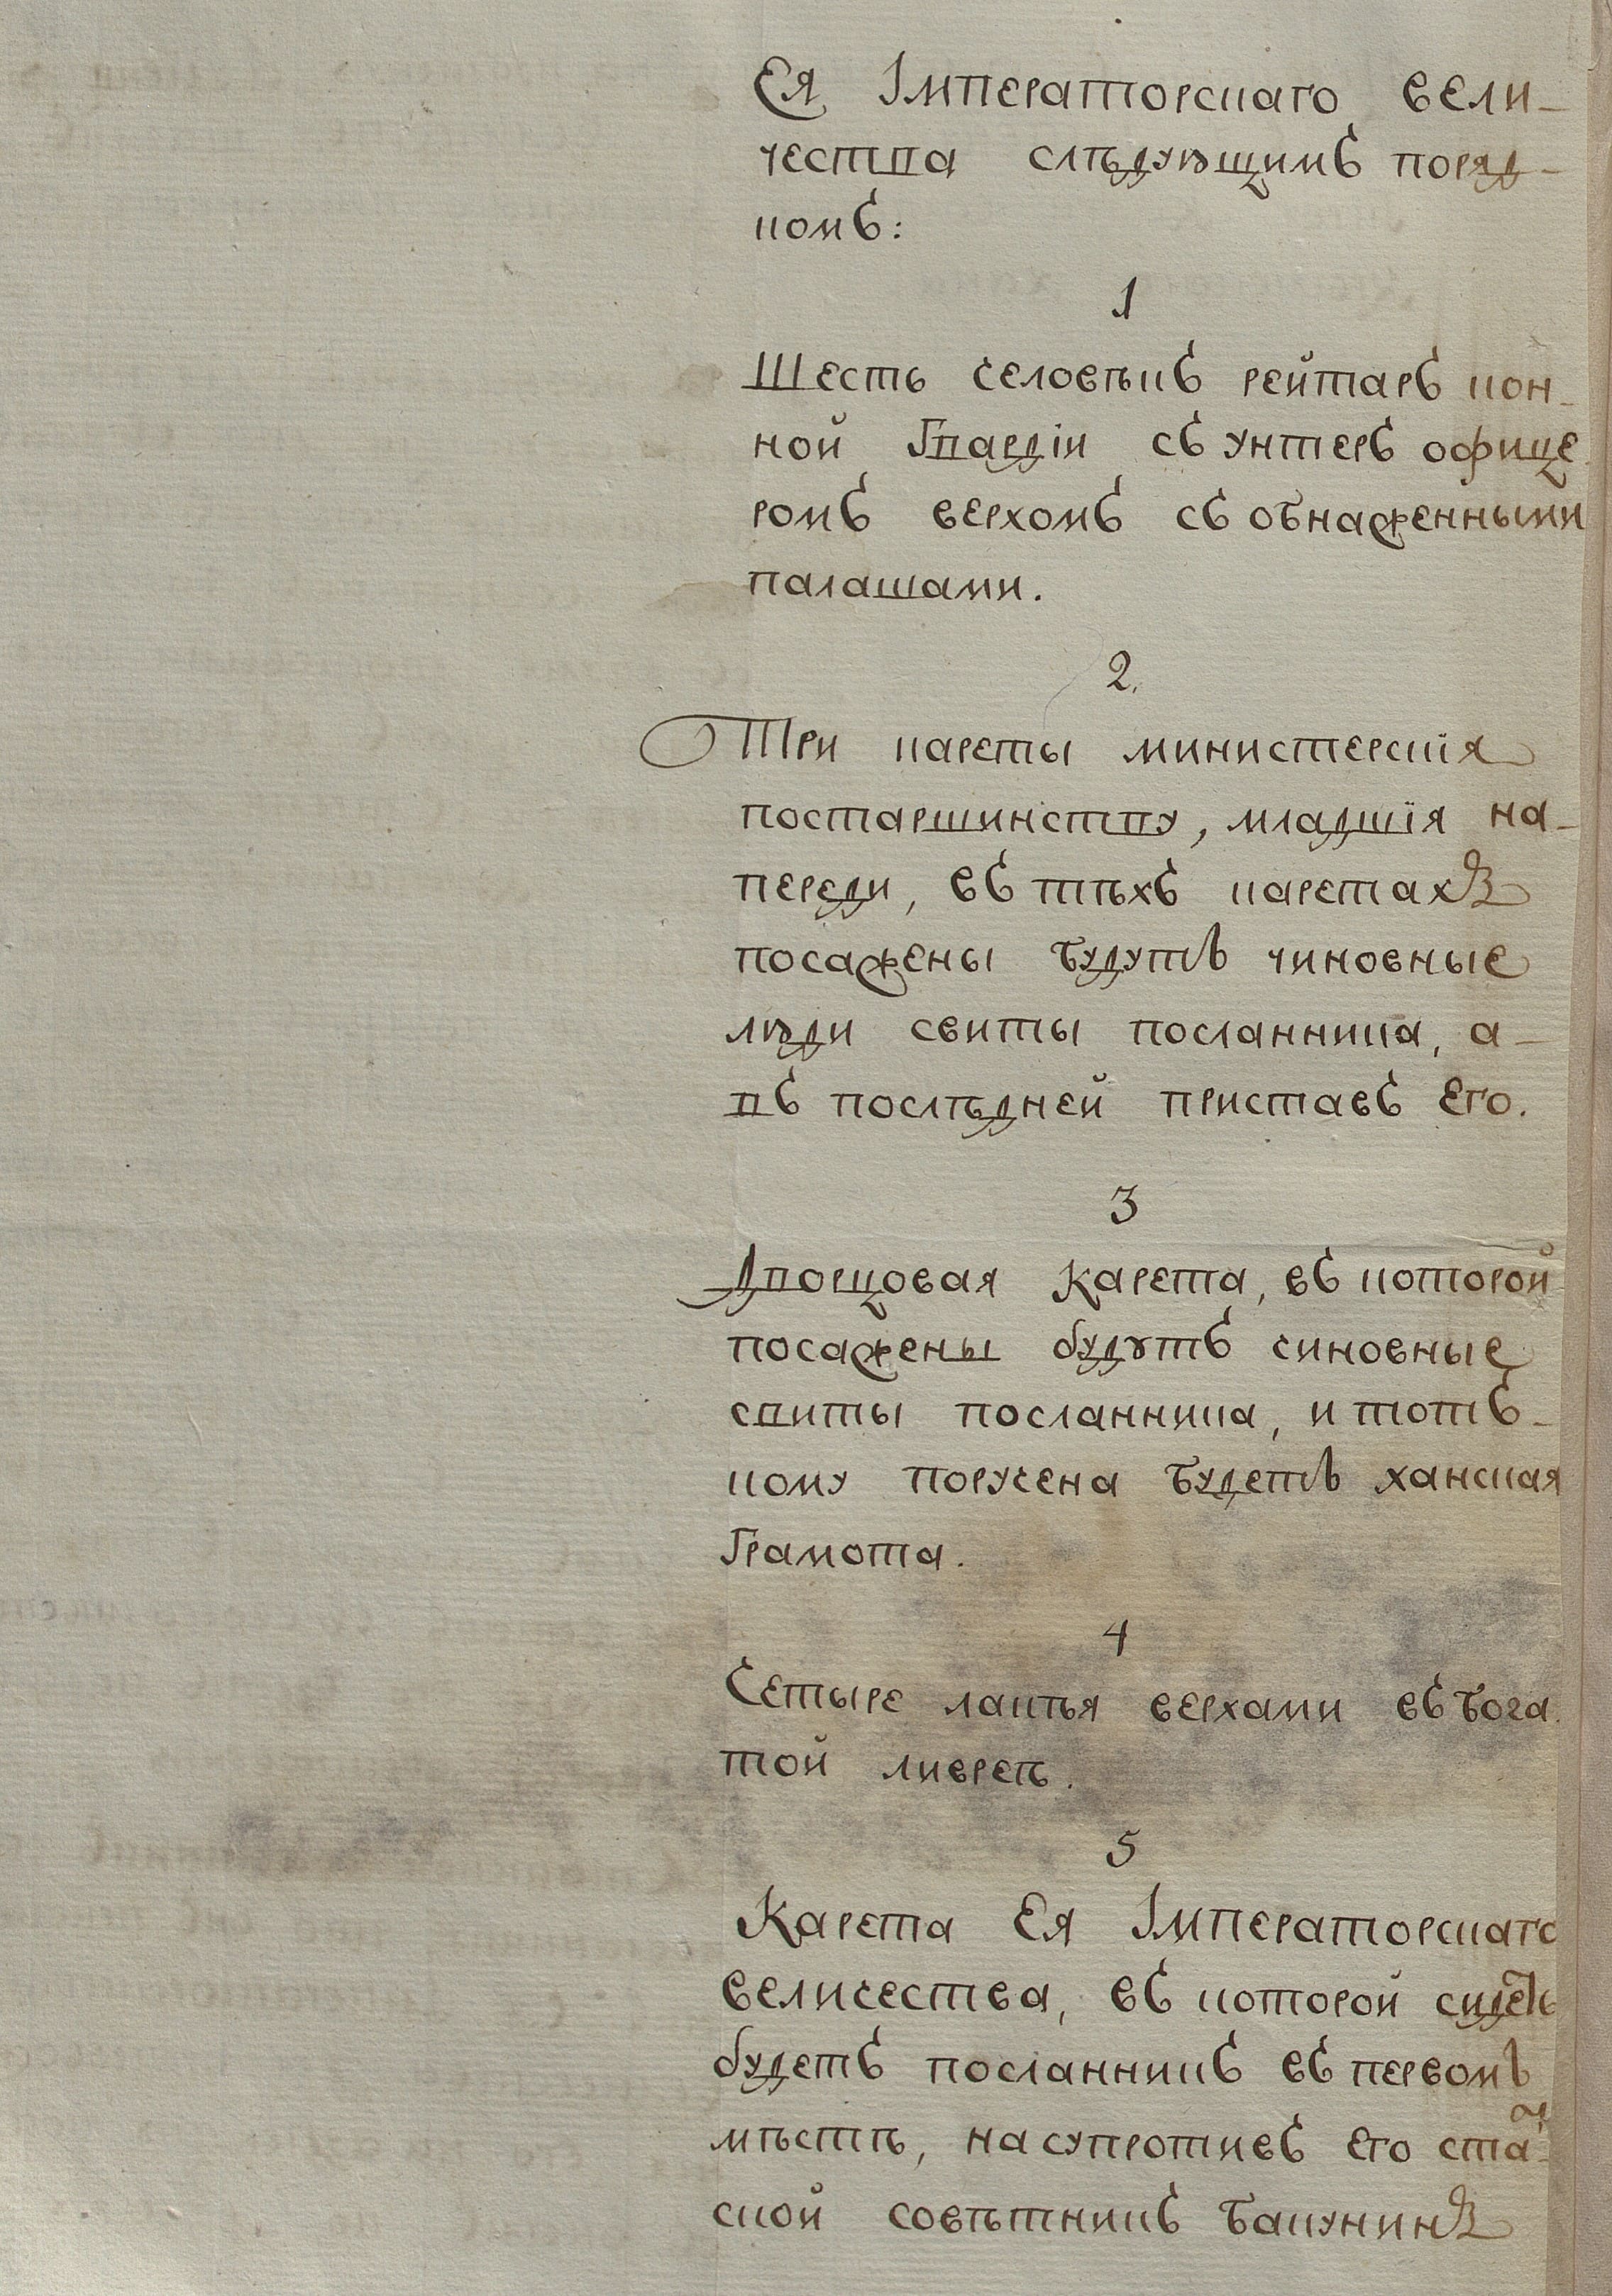 Ея Імператорскаго вели-
чества слѣдующимъ поряд-
комъ:
1
Шесть человѣкъ рейтаръ кон-
ной Гвардіи съ унтеръ офице-
ромъ верхомъ съ обнаженными
палашами.
2.
Три кареты министерскія
постаршинству, младшія на-
переди, въ тѣхъ каретахъ
посажены будутъ чиновные
люди свиты посланника, а-
въ послѣдней приставъ Его.
3
Дворцовая Карета, въ которой
посажены будутъ чиновные
свиты посланника, и тотъ-
кому поручена будетъ ханская
Грамота.
4
Четыре лакѣя верхами въ бога-
той ливреѣ.
5
Карета Ея Імператорскаго
величества, въ которой сидѣть
будетъ посланникъ въ первомъ
мѣстѣ, насупротивъ Его стат-
ской совѣтникъ Бакунинъ